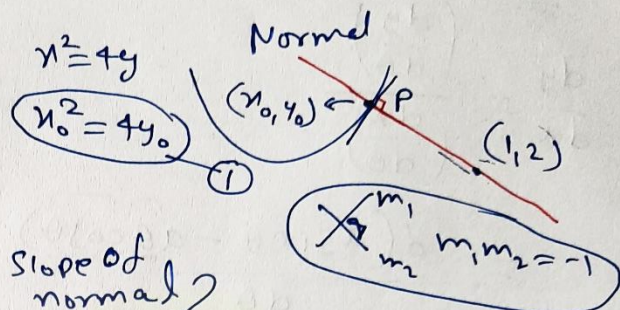 Normal
x²=4y
x₀²=4y₀
①
(x₀,y₀)←P
(1,2)
m₁
m₂
m₁m₂=-1
Slope of
normal?